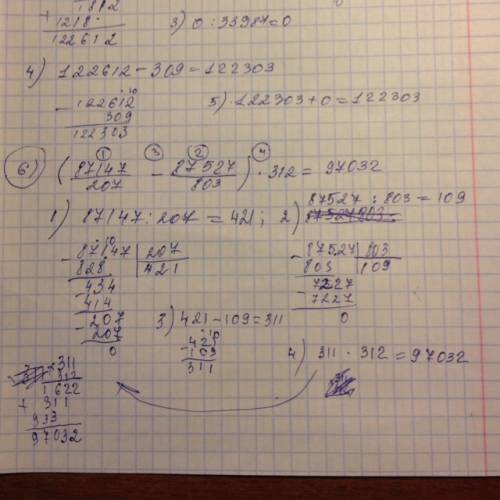 1812
+ 1218
122612
3) 0 : 33987 = 0
4) 122612 − 309 = 122303
− 122612
309
122303
5) 122303 + 0 = 122303
6) (87147/207 − 87527/803) · 312 = 97032
1 3 2 4
1) 87147 : 207 = 421; 2) 87527 : 803 = 109
− 87147 | 207
828 | 421
− 434
414
− 207
207
0
− 87527 | 803
803 | 109
− 7227
7227
0
3) 421 − 109 = 311
− 421
109
311
4) 311 · 312 = 97032
× 311
312
1 622
+ 311
933
97032